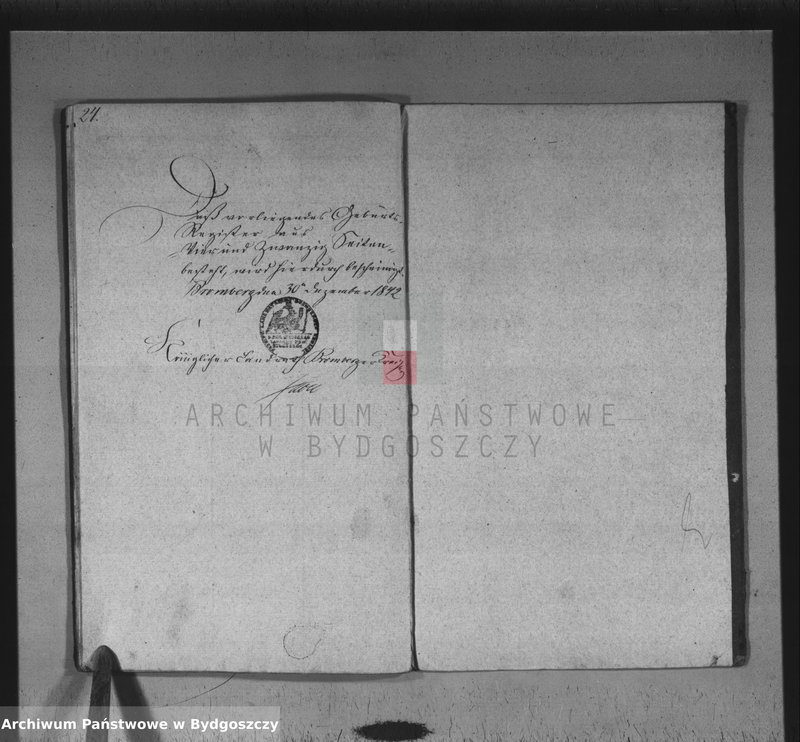 24.
Daß vorliegendes Geburts-
Register aus
Vier und Zwanzig Seiten
besteht, wird hierdurch bescheinigt.
Bromberg den 30n Dezember 1842
Königlicher Landrath Bromberger Kreis
ARCHIWUM PAŃSTWOWE
W BYDGOSZCZY
Archiwum Państwowe w Bydgoszczy